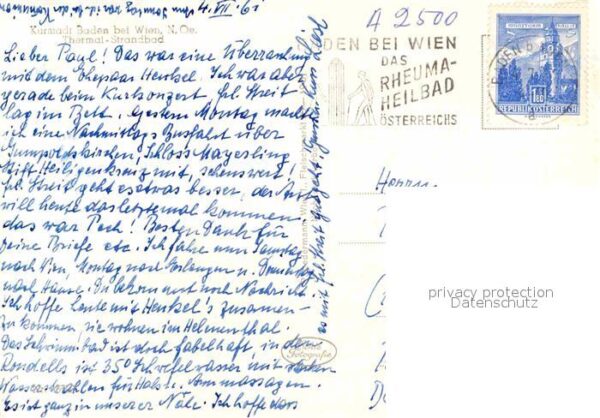 4. VII. 61
Kurstadt Baden bei Wien, N.Oe.
Thermal-Strandbad
Lieber Paul! Das war eine Überraschung
mit dem Ehepaar Henkel. Ich war aber
gerade beim Kurkonzert frl. Streit
lag im Bett. Gestern Montag machte
ich eine Nachmittags Busfahrt über
Gumpoldskirchen, Schloss Mayerling
Stift Heiligenkreuz mit, sehenswert!
frl. Streit geht es etwas besser, der Arzt
will heute das letztemal kommen
das war Pech! Besten Dank für
Deine Briefe etc. Ich fahre nun Samstag
nach Wien, Montag nach Erlangen u. Dienstag
nach Hause. Du bekommst noch Nachricht.
Ich hoffe heute mit Henkel's zusammen-
zukommen, sie wohnen im Helenenthal.
Das Schwimmbad ist doch fabelhaft in dem
Rondells ist 35° Schwefelwasser mit starken
Wasserstrahlen für Hals
massagen.
Es ist ganz in unserer Nähe. Ich hoffe dass
es mit frl. Streit gut geht,
A 2500
DEN BEI WIEN
DAS
RHEUMA-
HEILBAD
ÖSTERREICHS
REPUBLIK ÖSTERREICH
Herrn
privacy protection
Datenschutz